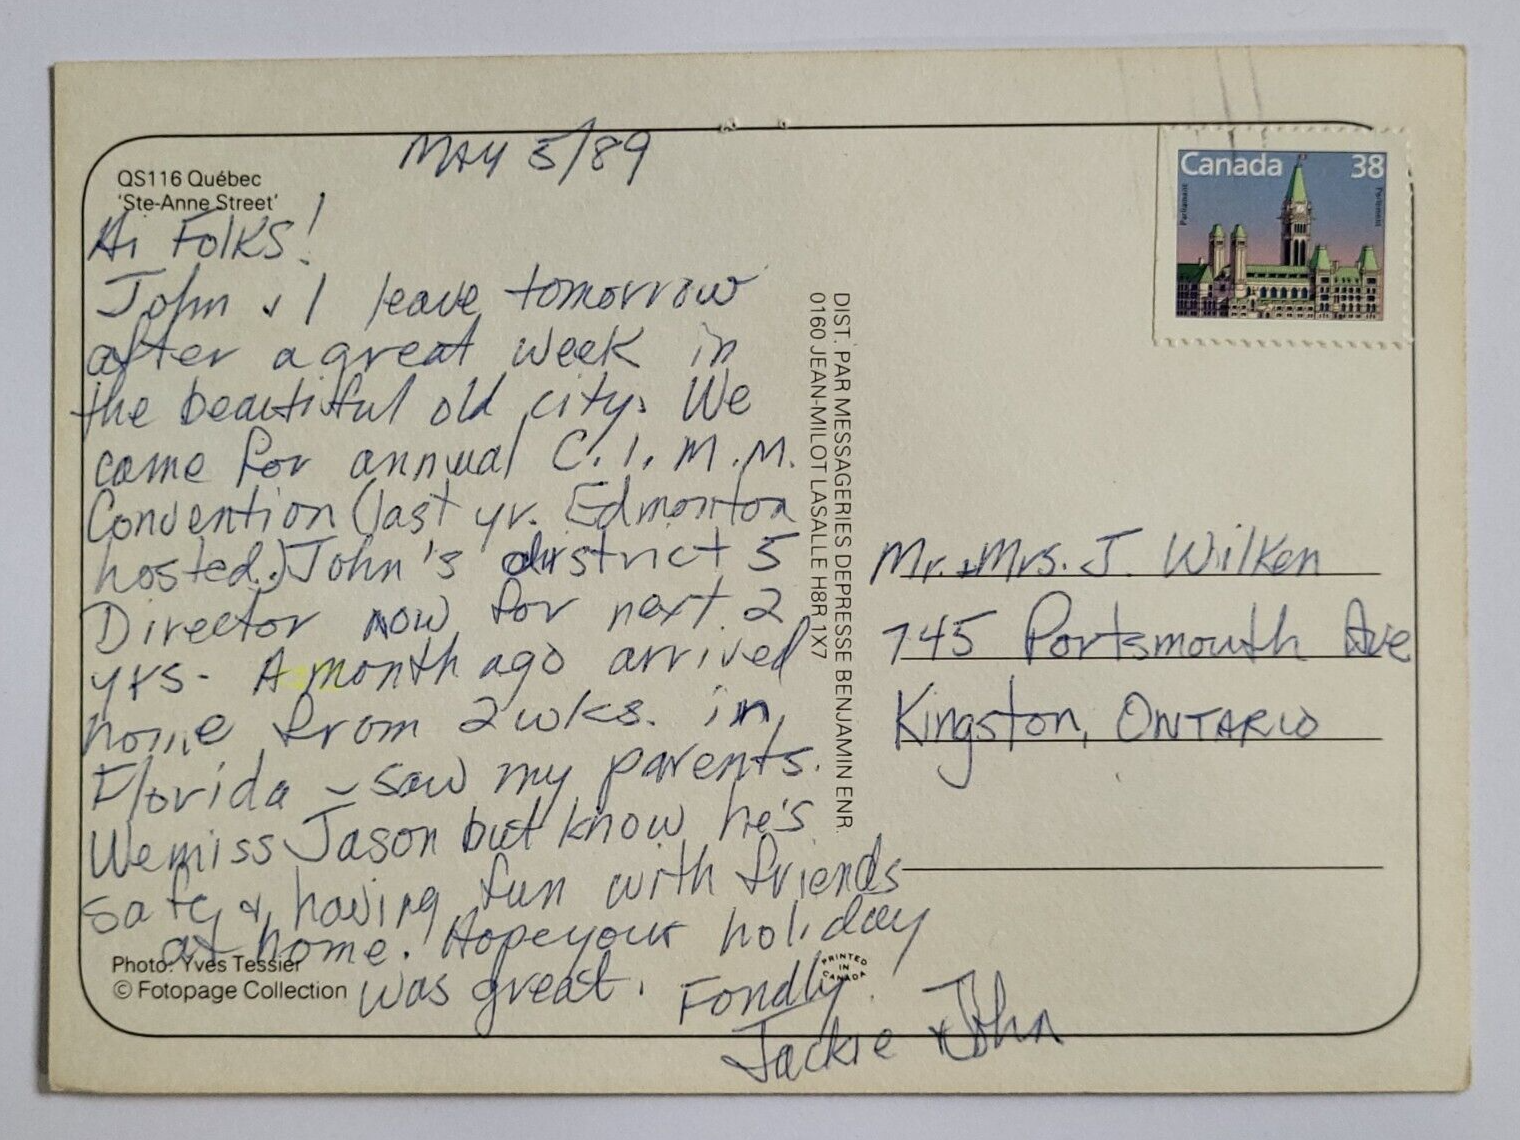 QS116 Québec
'Ste-Anne Street'
MAY 5/89
Hi Folks!
John & I leave tomorrow
after a great week in
the beautiful old city. We
came for annual C.I.M.M.
Convention (last yr. Edmonton
hosted.) John's district 5
Director now for next 2
yrs. A month ago arrived
home from 2 wks. in
Florida – saw my parents.
We miss Jason but know he's
safe & having fun with friends
at home. Hope your holiday
was great.
Fondly,
Jackie & John
Photo: Yves Tessier
© Fotopage Collection
DIST. PAR MESSAGERIES DE PRESSE BENJAMIN ENR.
0160 JEAN-MILOT LASALLE H8R 1X7
PRINTED
IN
CANADA
Canada 38
Parliament
Parlement
Mr. & Mrs. J. Wilken
745 Portsmouth Ave
Kingston, ONTARIO